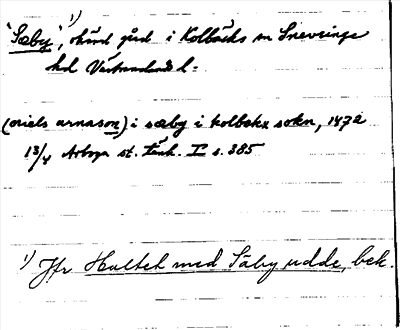 1)
"Sæby", okänd gård i Kolbäcks sn Snevringe
hd Västmanlands l:
(oriels arnason) i sæby i kolbekx sokn, 1472
13/4 Arboga st. tänk. I s. 385
1) Jfr Holtet med Säby udde, bek.